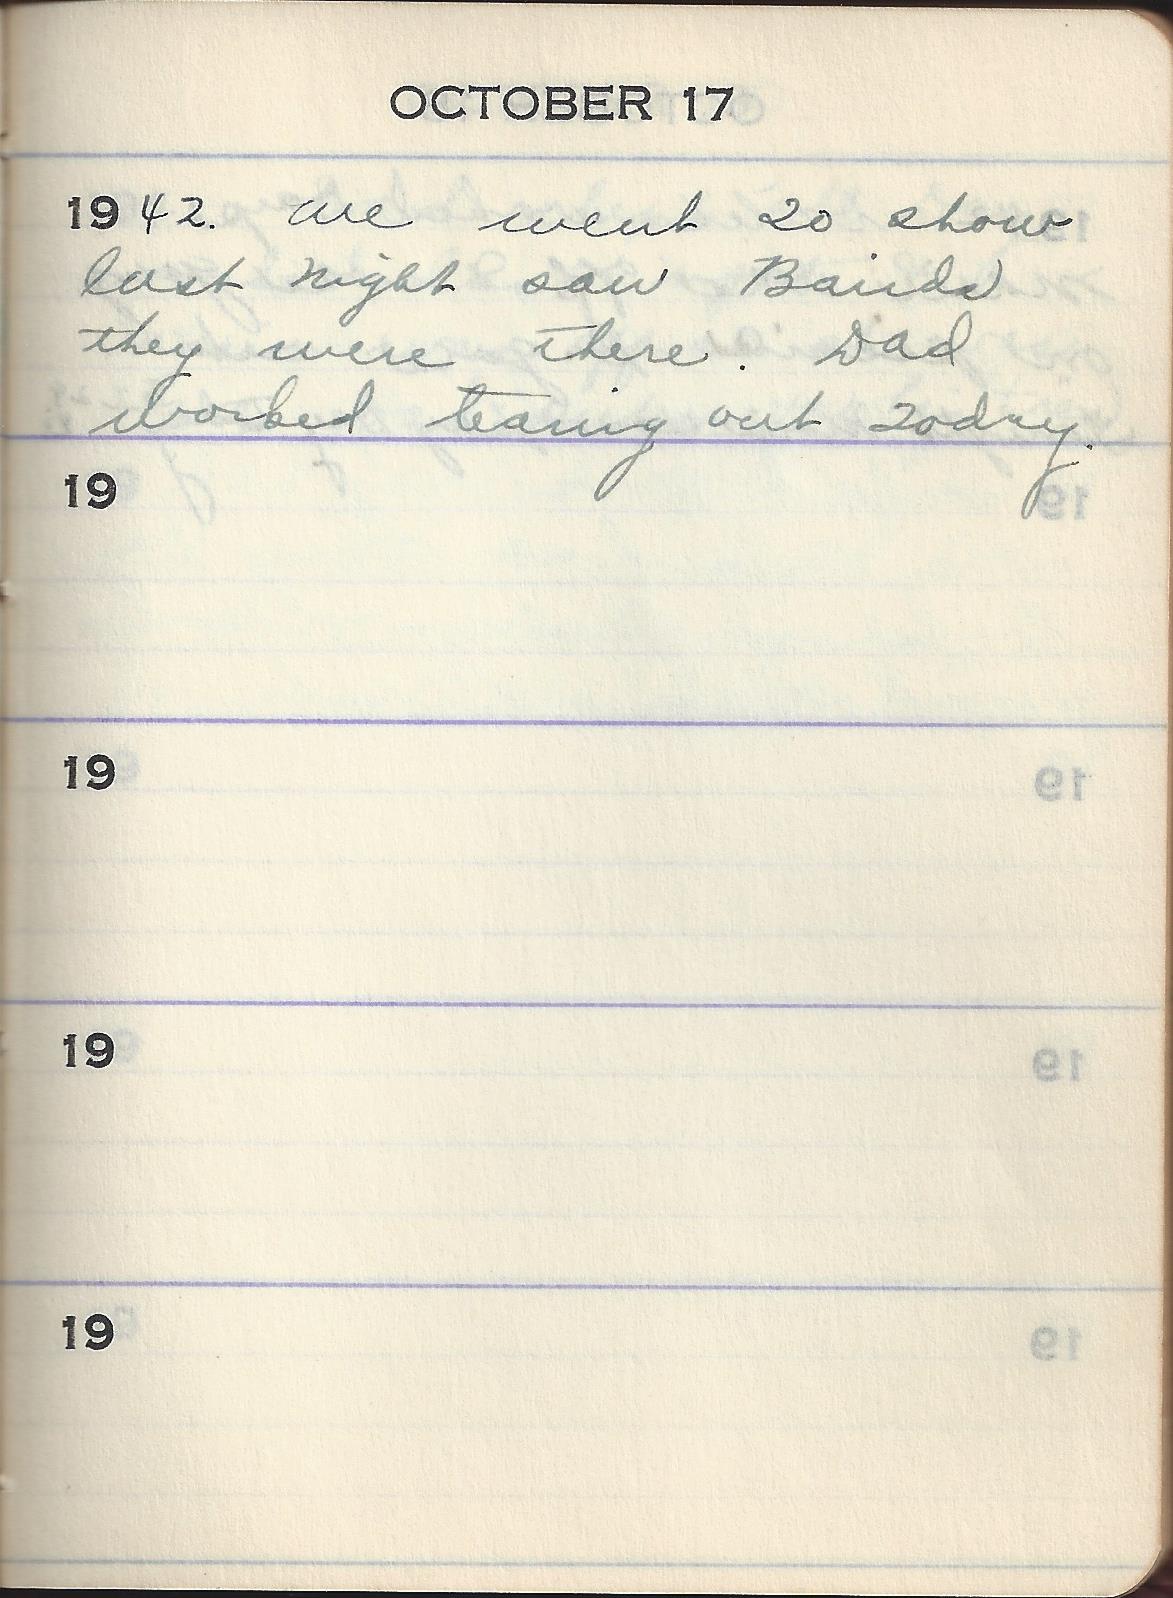 OCTOBER 17
1942. We went to show
last night saw Bairds
they were there. Dad
worked tearing out today.
19
19
19
19